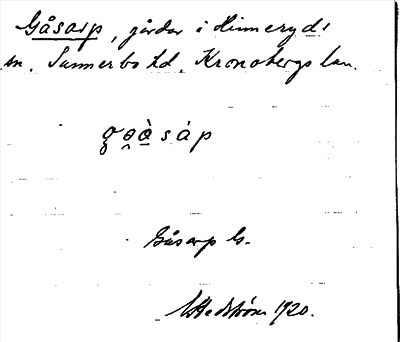 Gåsarp, gårdar i Hinneryds
sn. Sunnerbo hd. Kronobergs län.
Gåsarp G.
Hedström 1920.